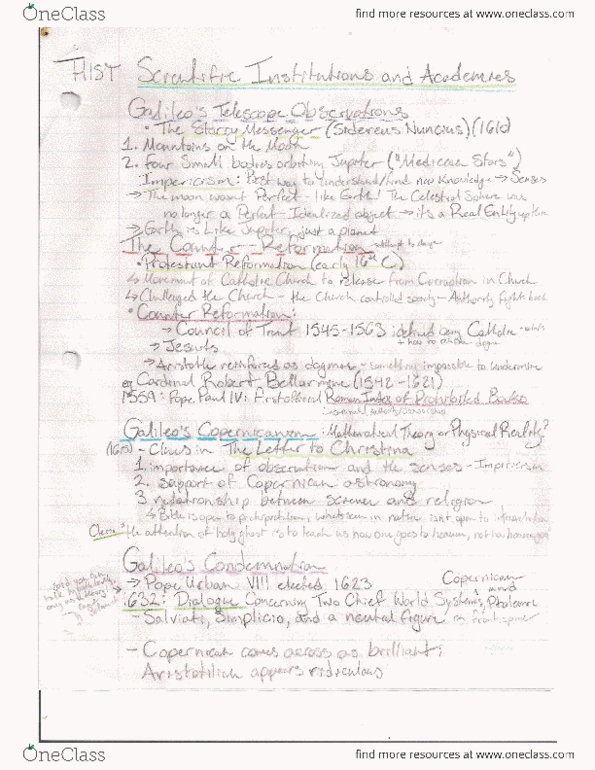 OneClass
find more resources at www.oneclass.com
HIST Scientific Institutions and Academies
Galileo's Telescope Observations
• The Starry Messenger (Sidereus Nuncius) (1610)
1. Mountains on the Moon
2. Four Small bodies orbiting Jupiter ("Medicean Stars")
Impericism: Best way to understand/find new knowledge → Senses
→ The moon wasn't Perfect - like Earth! The Celestial Sphere was
no longer a Perfect - Idealized object → its a Real Entity up there
→ Earth is Like Jupiter, just a planet
The Counter-Reformation
• Protestant Reformation (early 16th C)
↳ Movement of Catholic Church to release from Corruption in Church
↳ Challenged the Church - the Church controlled society - Authority fights back
• Counter Reformation:
→ Council of Trent 1545-1563: defined being Catholic
→ Jesuits
→ Aristotle reinforced as dogma - something impossible to undermine
eg Cardinal Robert Bellarmine (1542-1621)
1559: Pope Paul IV: Roman Index of Prohibited Books
Galileo's Copernicanism: Mathematical Theory or Physical Reality?
(1615) - Clues in The Letter to Christina
1. importance of observation and the senses - Impericism
2. support of Copernican astronomy
3. relationship between science and religion
↳ Bible is open to, whats seen in nature isn't open to
"the attention of holy ghost is to teach us how one goes to heaven, not how heaven goes
Galileo's Condemnation
→ Pope Urban VIII elected 1623
Copernican
and
1632: Dialogue Concerning Two Chief World Systems, Ptolemaic
- Salviati, Simplicio, and a neutral figure on frontispiece
- Copernican comes across as brilliant;
Aristotilian appears ridiculous
OneClass
find more resources at www.oneclass.com